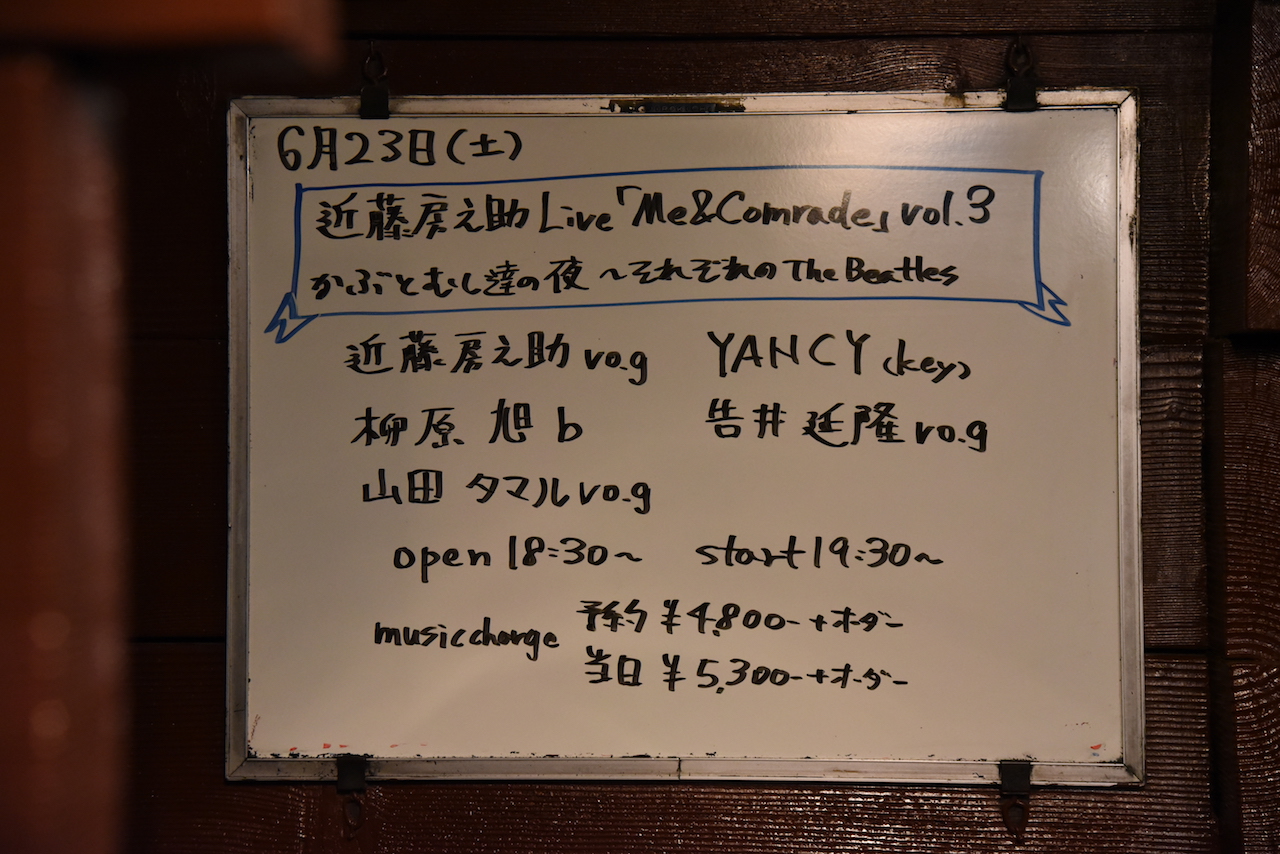 6月23日(土)
近藤房之助 Live「Me&Comrade」vol.3
かぶとむし達の夜 〜それぞれの The Beatles
近藤房之助 vo.g YANCY (key)
柳原 旭 b 告井 延隆 vo.g
山田 タマル vo.g
open 18:30〜 start 19:30〜
music charge 予約 ¥4,800- +オーダー
当日 ¥5,300- +オーダー